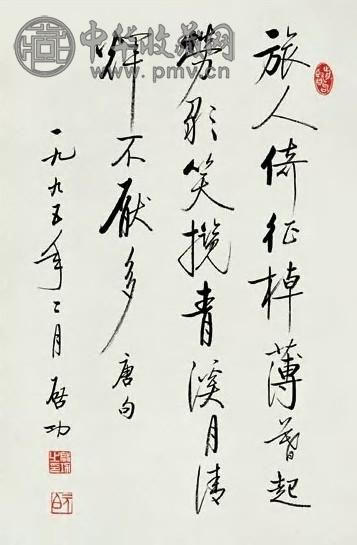 中华收藏网
www.pmv.cn
旅人倚征棹薄暮起
勞歌笑攬青溪月清
輝不厭多
唐句
一九九五年二月启功
元白